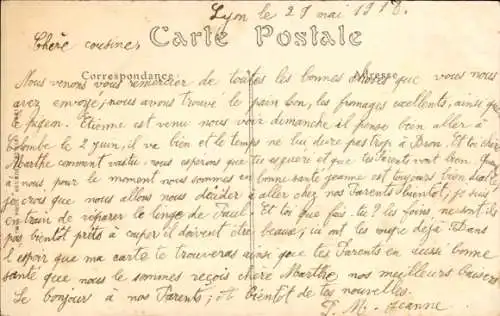 Lyon le 29 mai 1918.
Carte Postale
Chère cousine,
Correspondance
Adresse
Nous venons vous remercier de toutes les bonnes choses que vous nous
avez envoyé; nous avons trouvé le pain bon, les fromages excellents, ainsi que
le pigeon. Etienne est venu nous voir dimanche il pense bien aller à
Colombe le 2 juin, il va bien et le temps ne lui dure pas trop à Bron. Et toi chère
Marthe comment vas tu nous esperons que tu es guere et que tes Parents vont bien.
nous pour le moment nous sommes en bonne santé jeanne est toujours bien
je crois que nous allons nous décider à aller chez nos Parents bientôt; je suis
en train de réparer le linge de Et toi que fais-tu? les foins, ne sont ils
pas bientôt prêts à couper il doivent être beaux; ici ont les déjà Dans
l'espoir que ma carte te trouveras ainsi que tes Parents en aussi bonne
santé que nous le sommes reçois chère Marthe nos meilleurs baisers
Le bonjour à nos Parents; et bientôt de tes nouvelles.
P. M. Jeanne